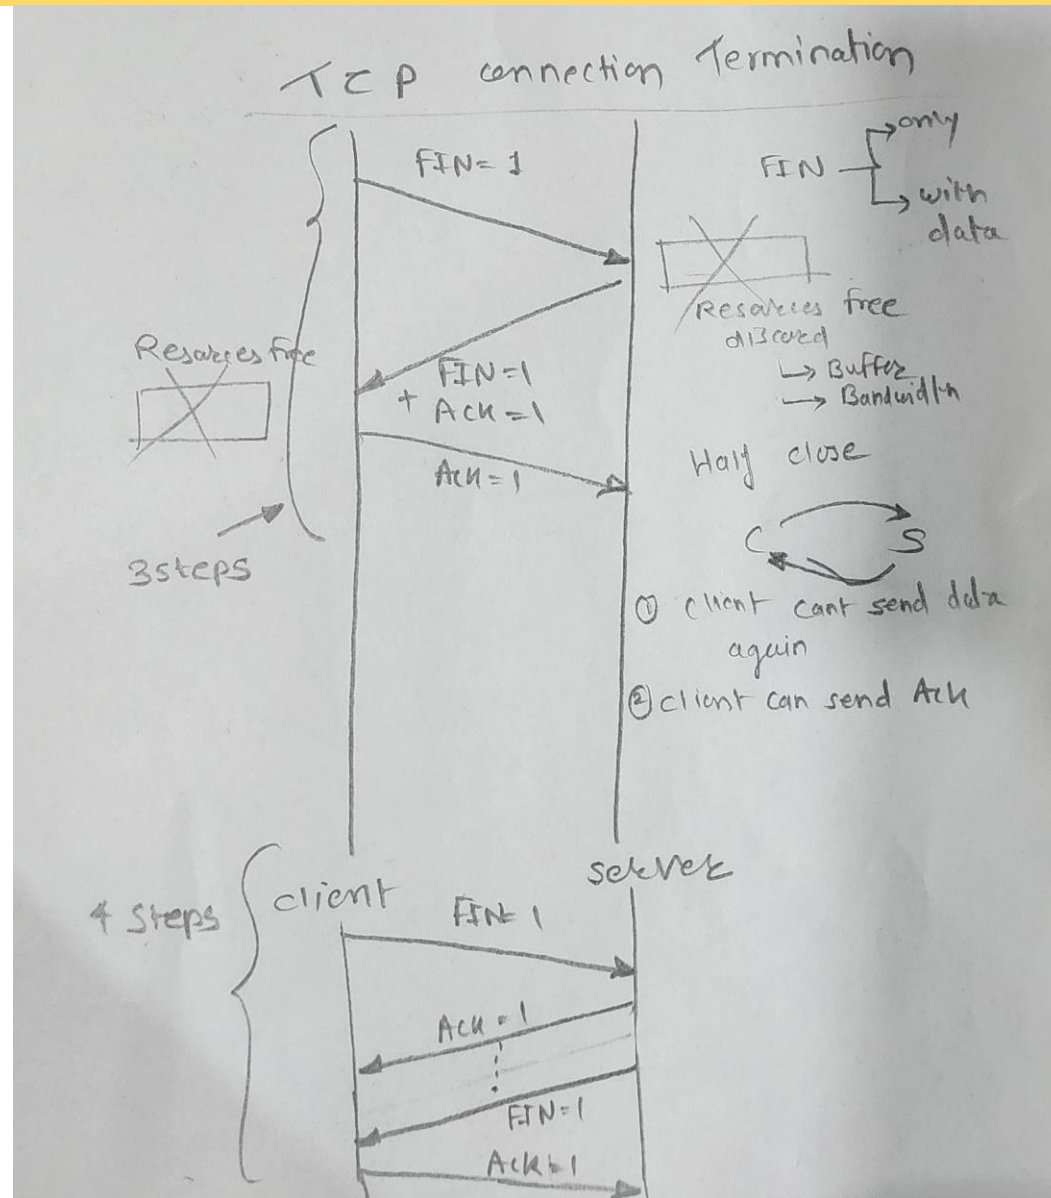 TCP connection Termination
FIN = 1
FIN
only
with
data
Resources free
discard
Buffer
Bandwidth
Resources free
FIN = 1
+ Ack = 1
Ack = 1
3 steps
Half close
C S
① client cant send data
again
② client can send Ack
4 steps
client
server
FIN = 1
Ack = 1
FIN = 1
Ack = 1